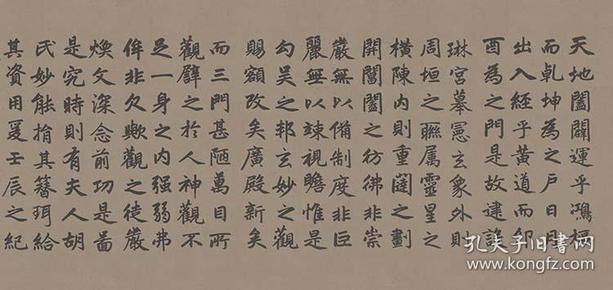 天地闔闢運乎鴻樞
而乾坤為之戶日月
出入經乎黃道而卯
酉為之門是故建設
琳宮摹憲玄象外則
周垣之聯屬靈星之
橫陳內則重闥之劃
開閶闔之彷彿非崇
嚴無以備制度非巨
麗無以竦視瞻惟是
勾吳之邦玄妙之觀
賜額改矣廣殿新矣
而三門甚陋萬目所
觀譬之於人神觀不
足一身之內强弱弗
侔非欠歟觀之徒嚴
煥文深念前功是啚
是究時則有夫人胡
氏妙能捐其簪珥給
其資用爰壬辰之紀
孔夫子旧书网
www.kongfz.com